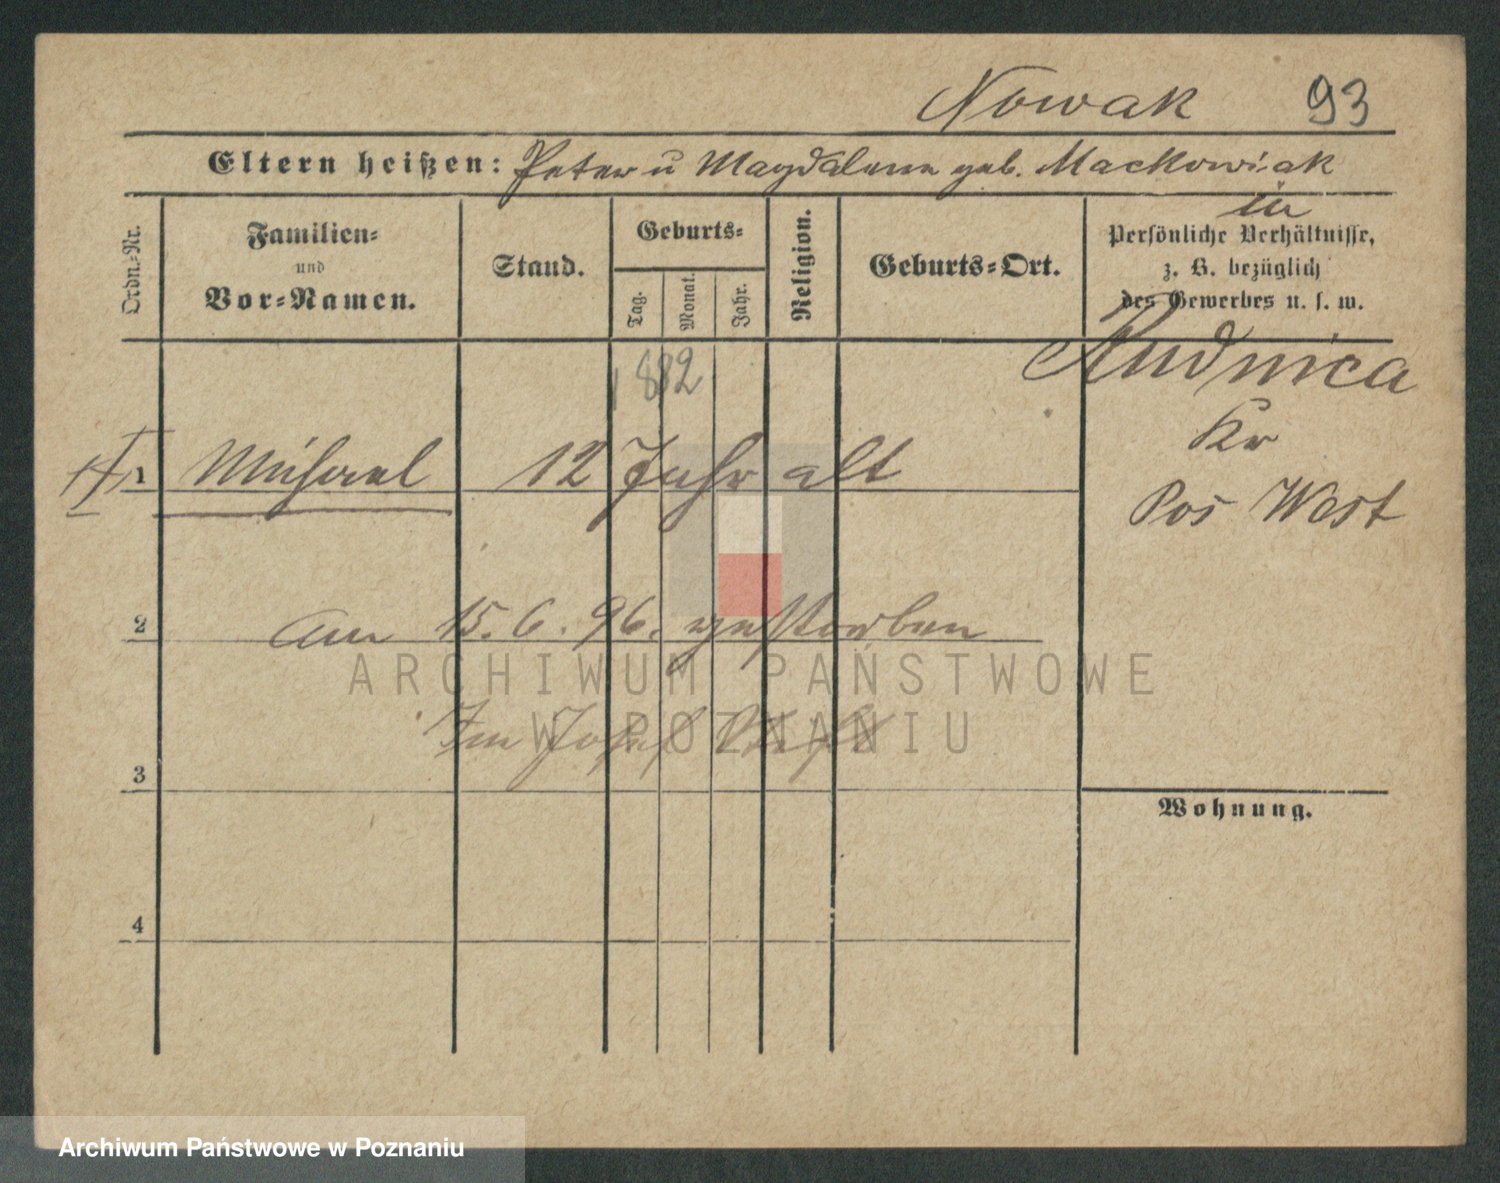 Nowak 93
Eltern heißen: Peter u Magdalena geb. Mackowiak
in
Ordn.-Nr.
Familien-
und
Vor-Namen.
Stand.
Geburts-
Tag.
Monat.
Jahr.
Religion.
Geburts-Ort.
Persönliche Verhältnisse,
z. B. bezüglich
des Gewerbes u. s. w.
Rudnica
Kr
Pos West
1882
1 Michael 12 Jahr alt
2 am 15.6.96. gestorben
Im Josef Stift
3
Wohnung.
4
ARCHIWUM PAŃSTWOWE
W POZNANIU
Archiwum Państwowe w Poznaniu